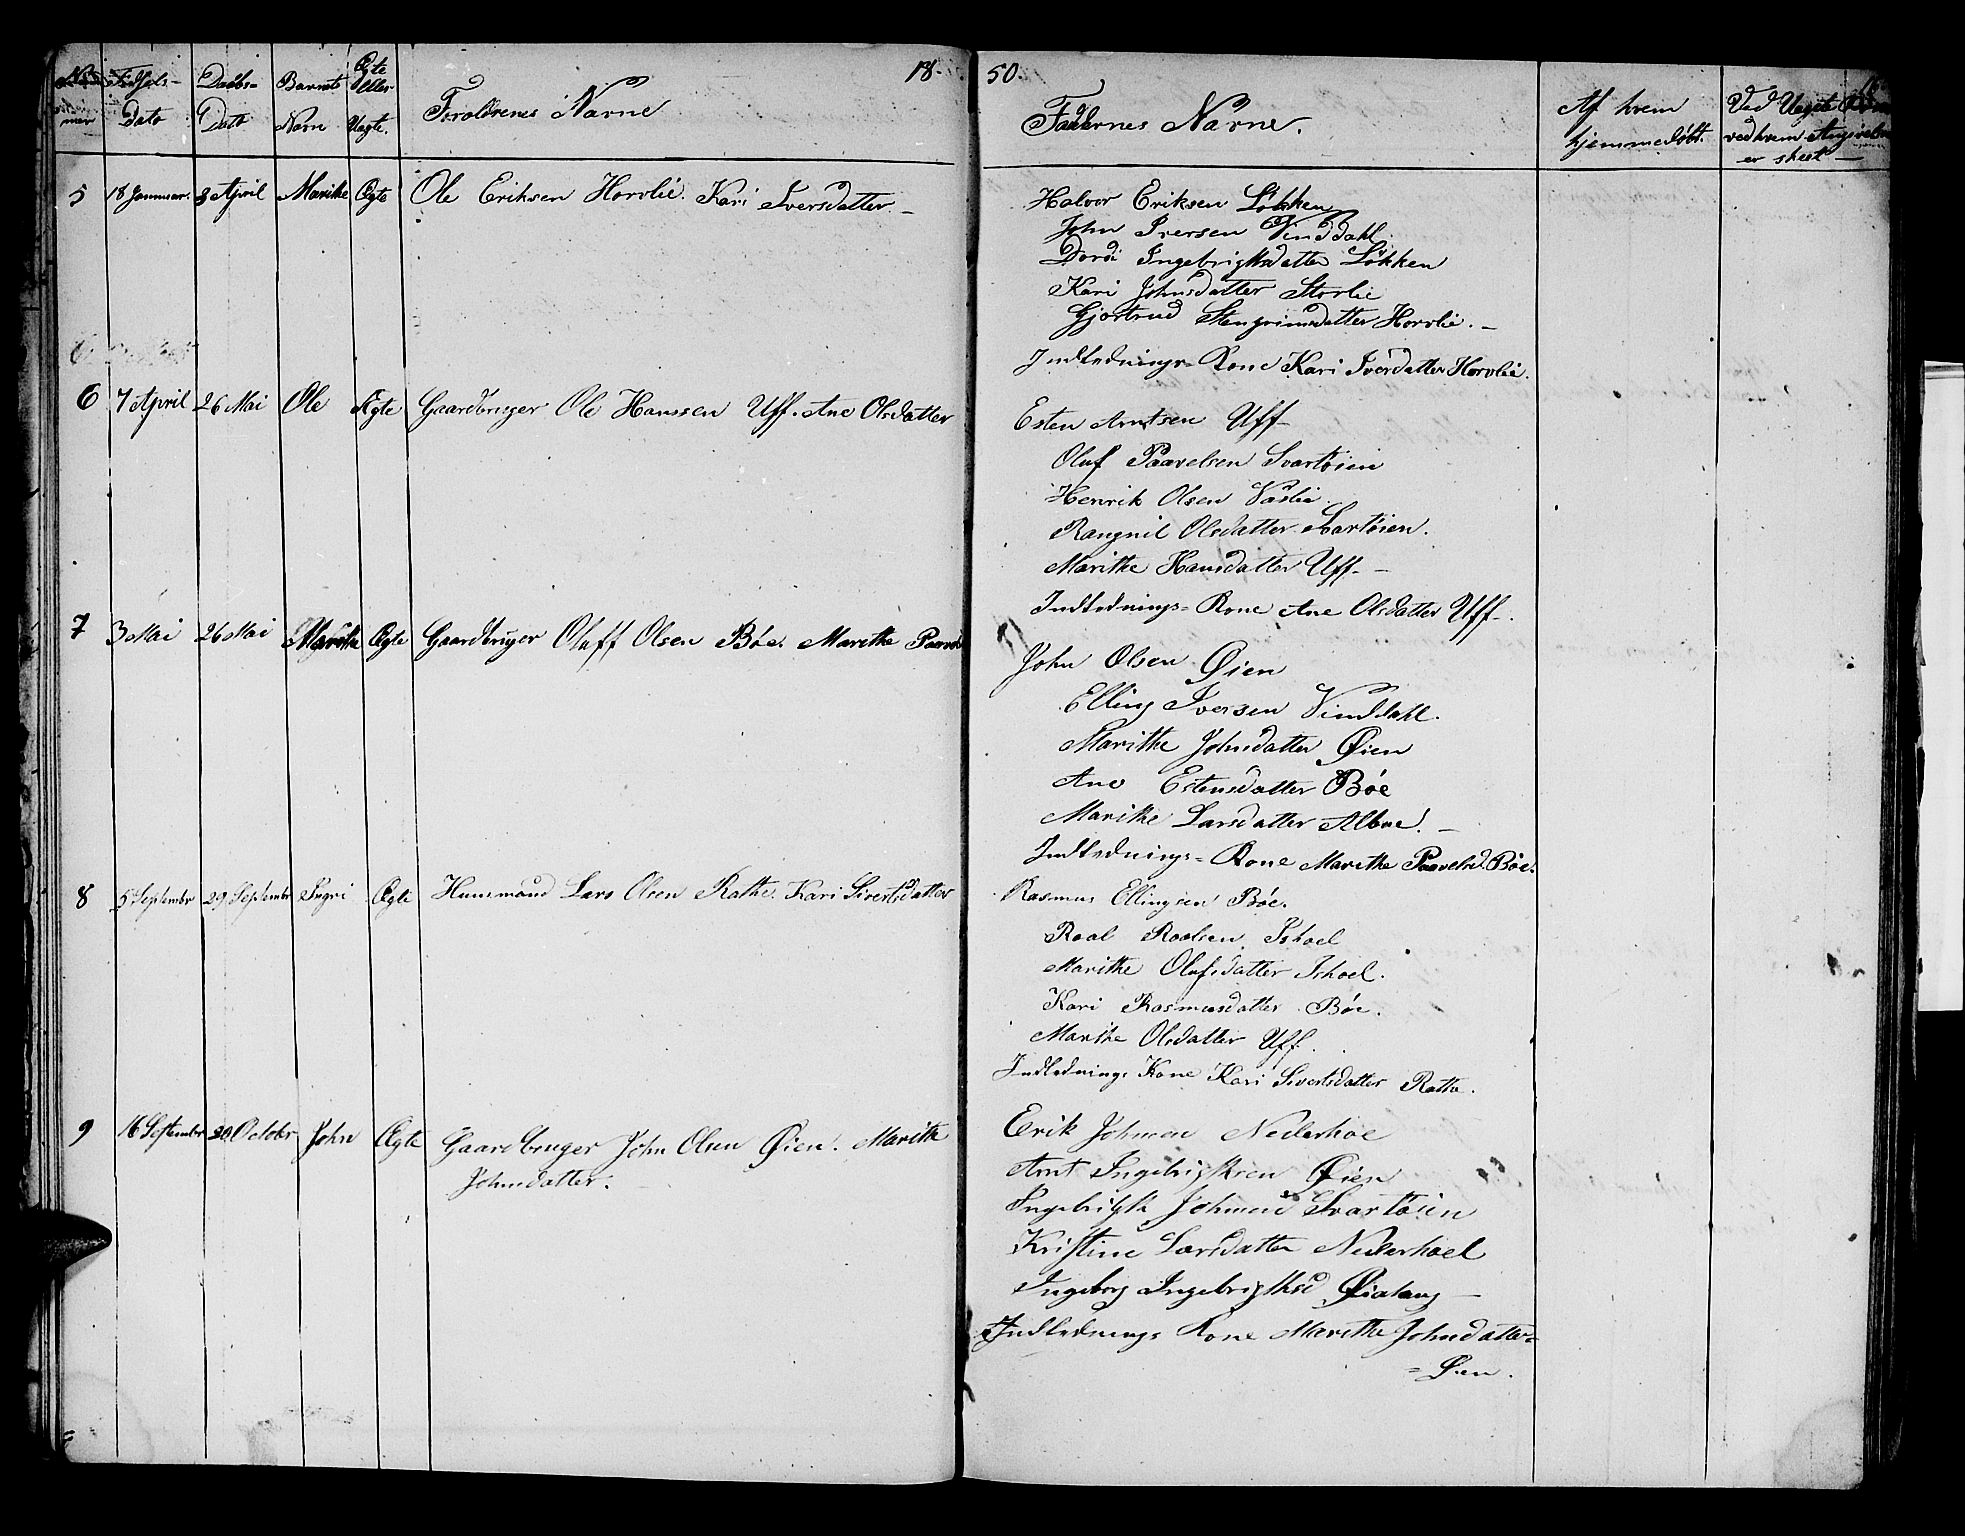 18
Fødsels-
Dato
Daabs-
Dato
Barnets
Navn
Ægte
eller
Uægte.
Foroldrenes Navne
5 18 Januar. 3 April Marithe Ægte Ole Eriksen Horvlie. Kari Iversdatter. –
6 7 April 26 Mai Ole Ægte Gaardbruger Ole Hanssen Uff. Ane Olsdatter
7 3 Mai 26 Mai Marithe Ægte Gaardbruger Oluff Olsen Bøe. Marithe
8 5 Septembr 29 Septembr Ingri Ægte Huusmand Lars Olsen Rathe. Kari Sivertsdatter
9 16 Septembr 20 Octobr John Ægte Gaardbruger John Olsen Øien. Marith
Johnsdatter. –
50.
Faddernes Navne.
Af hvem
hjemmedøbt.
Ved Uægte
ved hvem Angivelse
er skeet –
Halvor Eriksen Løkken
John Iversen Vinddahl
Dordi Ingebrigtsdatter Løkken
Kari Johnsdatter Storlie
Gjertrud Stengrimsdatter Horvlie. –
Indlednings-Kone Kari Iversdatter Horvlie.
Esten Arntsen Uff
Oluf Paavelsen Svartøien
Henrik Olsen Vaslie
Rangnil Olsdatter Svartøien.
Marithe Hansdatter Uff. –
Indlednings-Kone Ane Olsdatter Uff.
John Olsen Øien
Elling Iversen Vinddahl.
Marithe Johnsdatter Øien
Ane Estensdatter Bøe
Marithe Larsdatter Alboe. –
Indlednings-Kone Marithe Paavelsd. Bøe.
Rasmus Ellingsen Bøe.
Roal Roalsen Ishoel
Marithe Olufsdatter Ishoel.
Kari Rasmusdatter Bøe.
Marithe Olsdatter Uff.
Indlednings Kone Kari Sivertsdatter Ratte.
Erik Johnsen Nederhoe
Arnt Ingebrigtsen Øien
Ingebrigt Johnsen Svartøien
Kristine Larsdatter Nederhoel
Ingeborg Ingebrigtsd Øiahaug –
Indlednings Kone Marithe Johnsdatter=
= Øien.